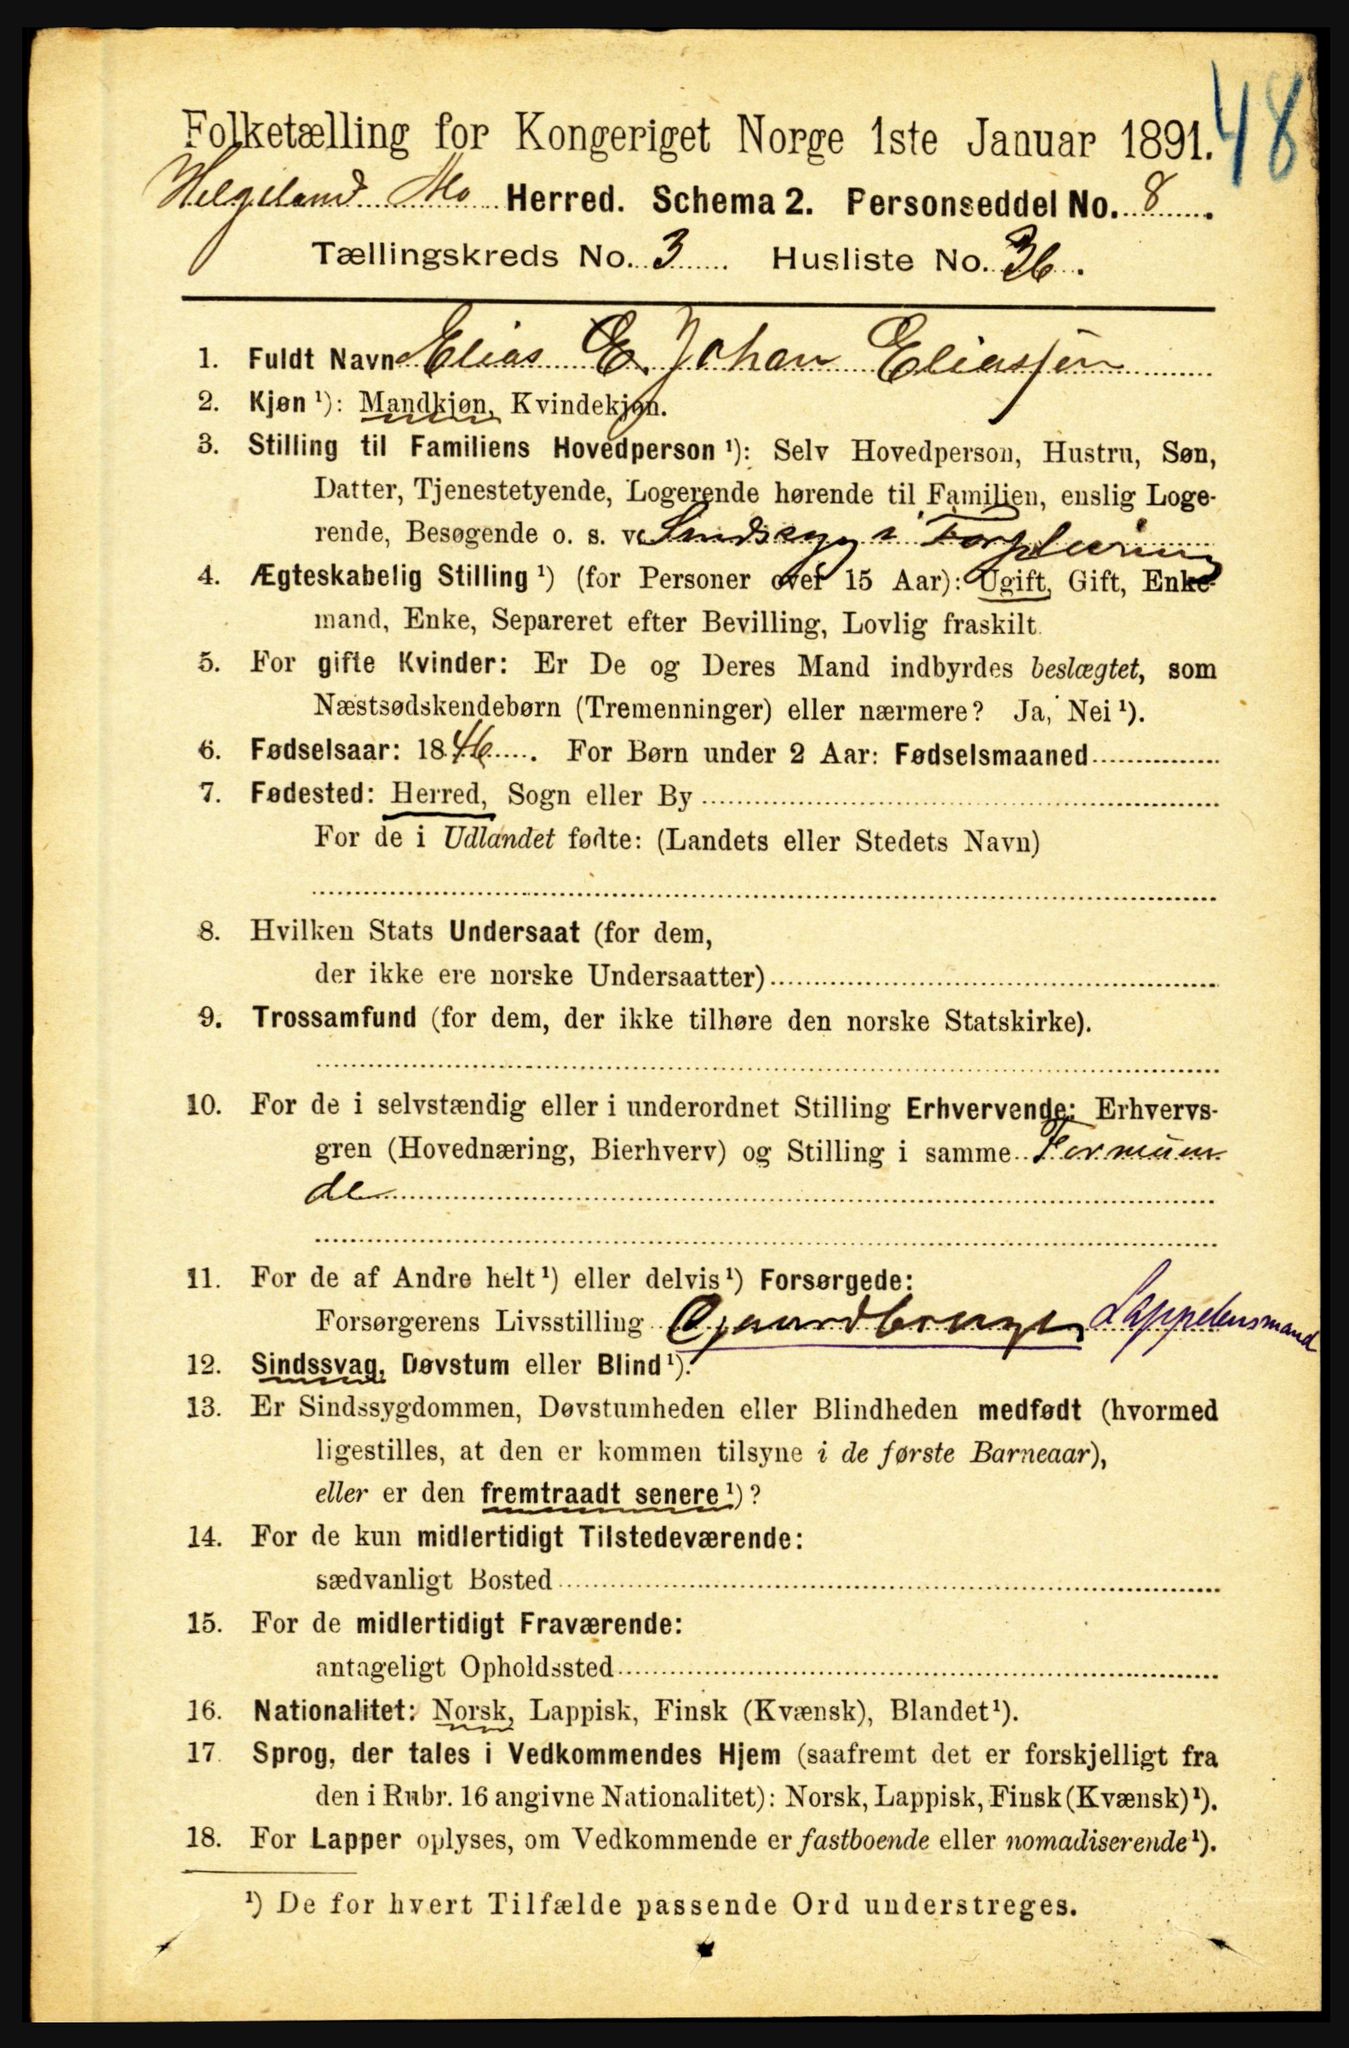 48
Folketælling for Kongeriget Norge 1ste Januar 1891.
Helgeland Mo Herred. Schema 2. Personseddel No. 8.
Tællingskreds No. 3 Husliste No. 36.
1. Fuldt Navn Elias E. Johan Eliassen
2. Kjøn ¹): Mandkjøn, Kvindekjøn.
3. Stilling til Familiens Hovedperson ¹): Selv Hovedperson, Hustru, Søn,
Datter, Tjenestetyende, Logerende hørende til Familien, enslig Loge-
rende, Besøgende o. s. v. Sindssyg i Forpleining
4. Ægteskabelig Stilling ¹) (for Personer over 15 Aar): Ugift, Gift, Enke-
mand, Enke, Separeret efter Bevilling, Lovlig fraskilt.
5. For gifte Kvinder: Er De og Deres Mand indbyrdes beslægtet, som
Næstsødskendebørn (Tremenninger) eller nærmere? Ja, Nei ¹).
6. Fødselsaar: 1846. For Børn under 2 Aar: Fødselsmaaned
7. Fødested: Herred, Sogn eller By
For de i Udlandet fødte: (Landets eller Stedets Navn)
8. Hvilken Stats Undersaat (for dem,
der ikke ere norske Undersaatter)
9. Trossamfund (for dem, der ikke tilhøre den norske Statskirke).
10. For de i selvstændig eller i underordnet Stilling Erhvervende: Erhvervs-
gren (Hovednæring, Bierhverv) og Stilling i samme Formuen
de
11. For de af Andre helt ¹) eller delvis ¹) Forsørgede:
Forsørgerens Livsstilling Gaardbruger Lappelensmand
12. Sindssvag, Døvstum eller Blind ¹).
13. Er Sindssygdommen, Døvstumheden eller Blindheden medfødt (hvormed
ligestilles, at den er kommen tilsyne i de første Barneaar),
eller er den fremtraadt senere ¹)?
14. For de kun midlertidigt Tilstedeværende:
sædvanligt Bosted
15. For de midlertidigt Fraværende:
antageligt Opholdssted
16. Nationalitet: Norsk, Lappisk, Finsk (Kvænsk), Blandet ¹).
17. Sprog, der tales i Vedkommendes Hjem (saafremt det er forskjelligt fra
den i Rubr. 16 angivne Nationalitet): Norsk, Lappisk, Finsk (Kvænsk) ¹).
18. For Lapper oplyses, om Vedkommende er fastboende eller nomadiserende ¹).
¹) De for hvert Tilfælde passende Ord understreges.